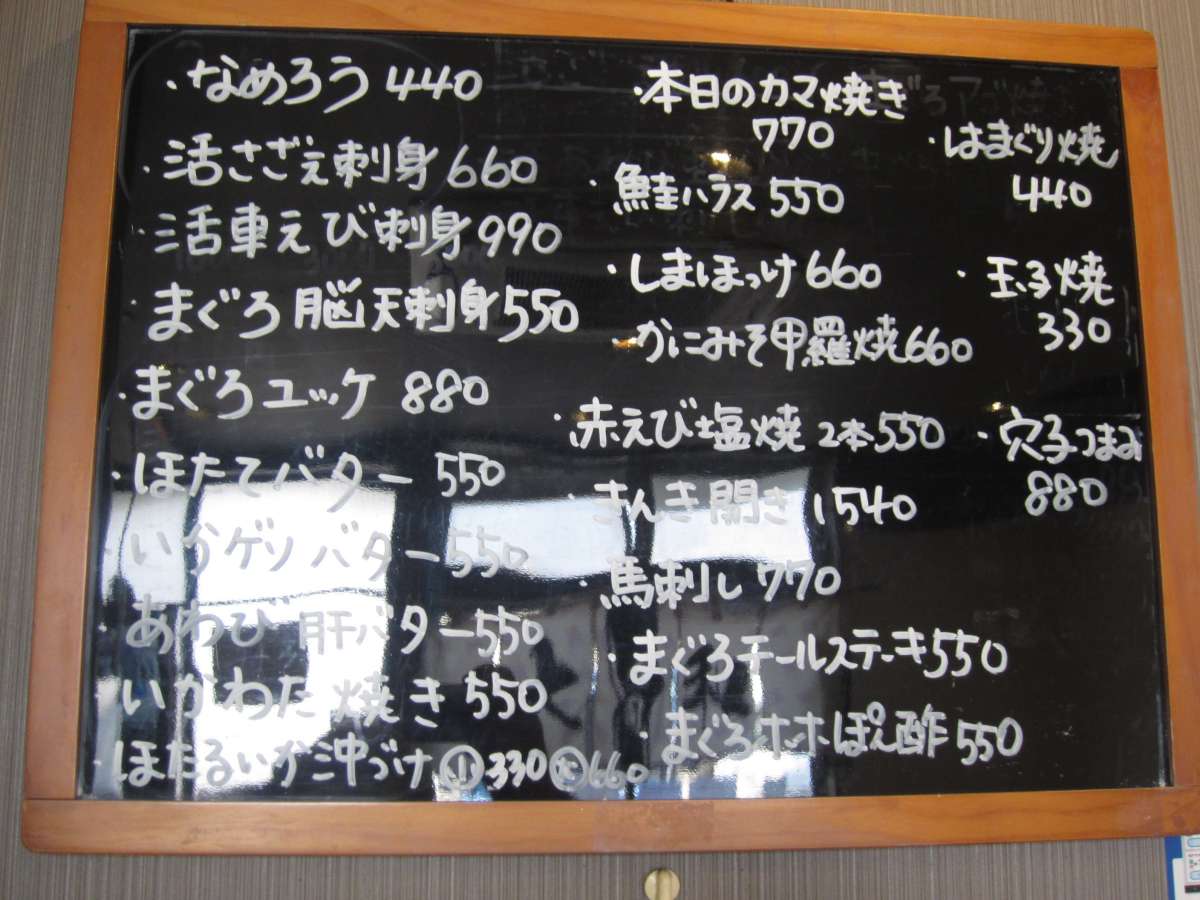 ・なめろう 440
・活さざえ刺身 660
・活車えび刺身 990
・まぐろ脳天刺身 550
・まぐろユッケ 880
・ほたてバター 550
・いかゲソバター 550
・あわび肝バター 550
・いかわた焼き 550
・ほたるいか沖づけ 小330 大660
・本日のカマ焼き
770
・鮭ハラス 550
・しまほっけ 660
・かにみそ甲羅焼 660
・赤えび塩焼 2本 550
・きんき開き 1540
・馬刺し 770
・まぐろチールステーキ 550
・まぐろホホぽん酢 550
・はまぐり焼
440
・玉子焼
330
・穴子つまみ
880